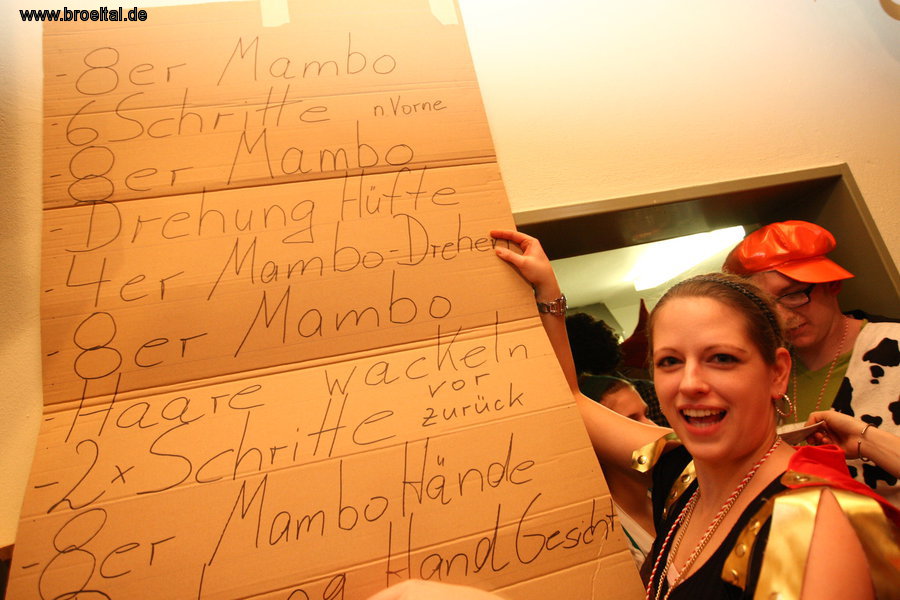 www.broeltal.de
- 8er Mambo
- 6 Schritte n. Vorne
- 8er Mambo
- Drehung Hüfte
- 4er Mambo-Drehen
- 8er Mambo
- Haare wackeln
- 2x Schritte vor zurück
- 8er Mambo Hände
Hand Gesicht